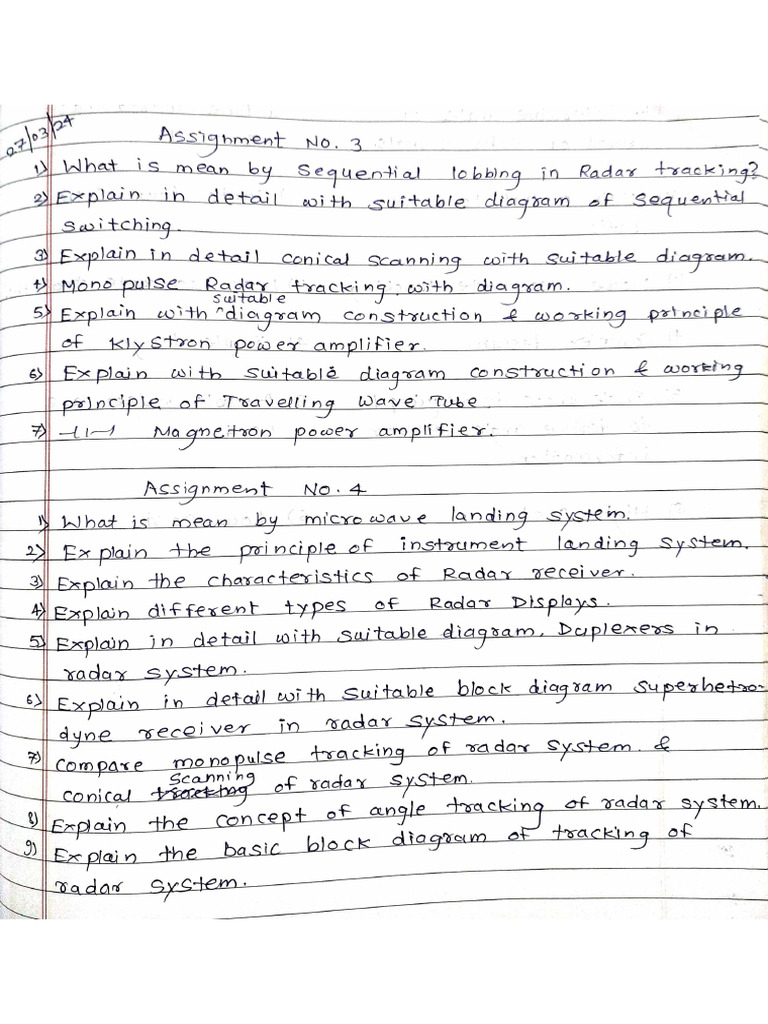 07/03/24
Assignment No. 3
1) What is mean by Sequential lobbing in Radar tracking?
2) Explain in detail with suitable diagram of Sequential
Switching.
3) Explain in detail conical scanning with suitable diagram.
4) Mono pulse Radar tracking with diagram.
suitable
5) Explain with ^diagram construction & working principle
of Klystron power amplifier.
6) Explain with suitable diagram construction & working
principle of Travelling Wave Tube
7) -11-1 Magnetron power amplifier.
Assignment No. 4
1) What is mean by microwave landing system.
2) Explain the principle of instrument landing system.
3) Explain the characteristics of Radar receiver.
4) Explain different types of Radar Displays.
5) Explain in detail with suitable diagram, Duplexers in
radar system.
6) Explain in detail with suitable block diagram superhetro-
dyne receiver in radar system.
7) Compare monopulse tracking of radar system &
scanning
conical tracking of radar system.
8) Explain the concept of angle tracking of radar system.
9) Explain the basic block diagram of tracking of
radar system.